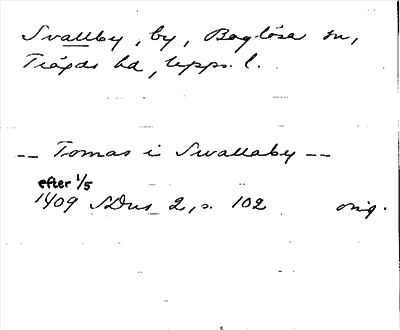 Svallby, by, Boglösa sn,
Trögds hd, Upps. l.
-- Tomas i Swallaby --
efter 1/5
1409 SDns 2, s. 102 orig.